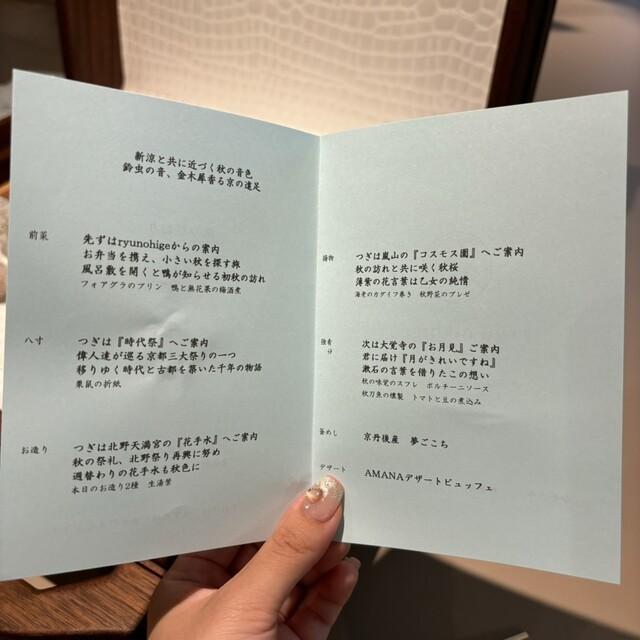 新涼と共に近づく秋の音色
鈴虫の音、金木犀香る京の遠足
前菜
先ずはryunohigeからの案内
お弁当を携え、小さい秋を探す旅
風呂敷を開くと鴨が知らせる初秋の訪れ
フォアグラのプリン 鴨と無花果の梅酒煮
八寸
つぎは『時代祭』へご案内
偉人達が巡る京都三大祭りの一つ
移りゆく時代と古都を築いた千年の物語
栗鼠の折紙
お造り
つぎは北野天満宮の『花手水』へご案内
秋の祭礼、北野祭り再興に努め
週替わりの花手水も秋色に
本日のお造り2種 生湯葉
揚物
つぎは嵐山の『コスモス園』へご案内
秋の訪れと共に咲く秋桜
薄紫の花言葉は乙女の純情
海老のカダイフ巻き 秋野菜のブレゼ
強肴
次は大覚寺の『お月見』ご案内
君に届け『月がきれいですね』
漱石の言葉を借りたこの想い
秋の味覚のスフレ ポルチーニソース
秋刀魚の燻製 トマトと豆の煮込み
釜めし
京丹後産 夢ごこち
デザート
AMANAデザートビュッフェ